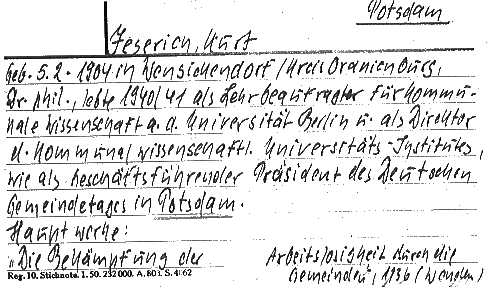 Potsdam
Jeserich, Kurt
Geb. 5.2.1904 in Wensickendorf/Kreis Oranienburg,
Dr. phil., lebte 1940/41 als Lehrbeauftragter für Kommu-
nale Wissenschaft a. d. Universität Berlin u. als Direktor
d. Kommunalwissenschaftl. Universitäts-Institutes,
wie als Geschäftsführender Präsident des Deutschen
Gemeindetages in Potsdam.
Hauptwerke:
"Die Bekämpfung der Arbeitslosigkeit durch die
Reg. 10. Stichnote. 1. 50. 232000. A. 801. S. 4162 Gemeinden", 1936